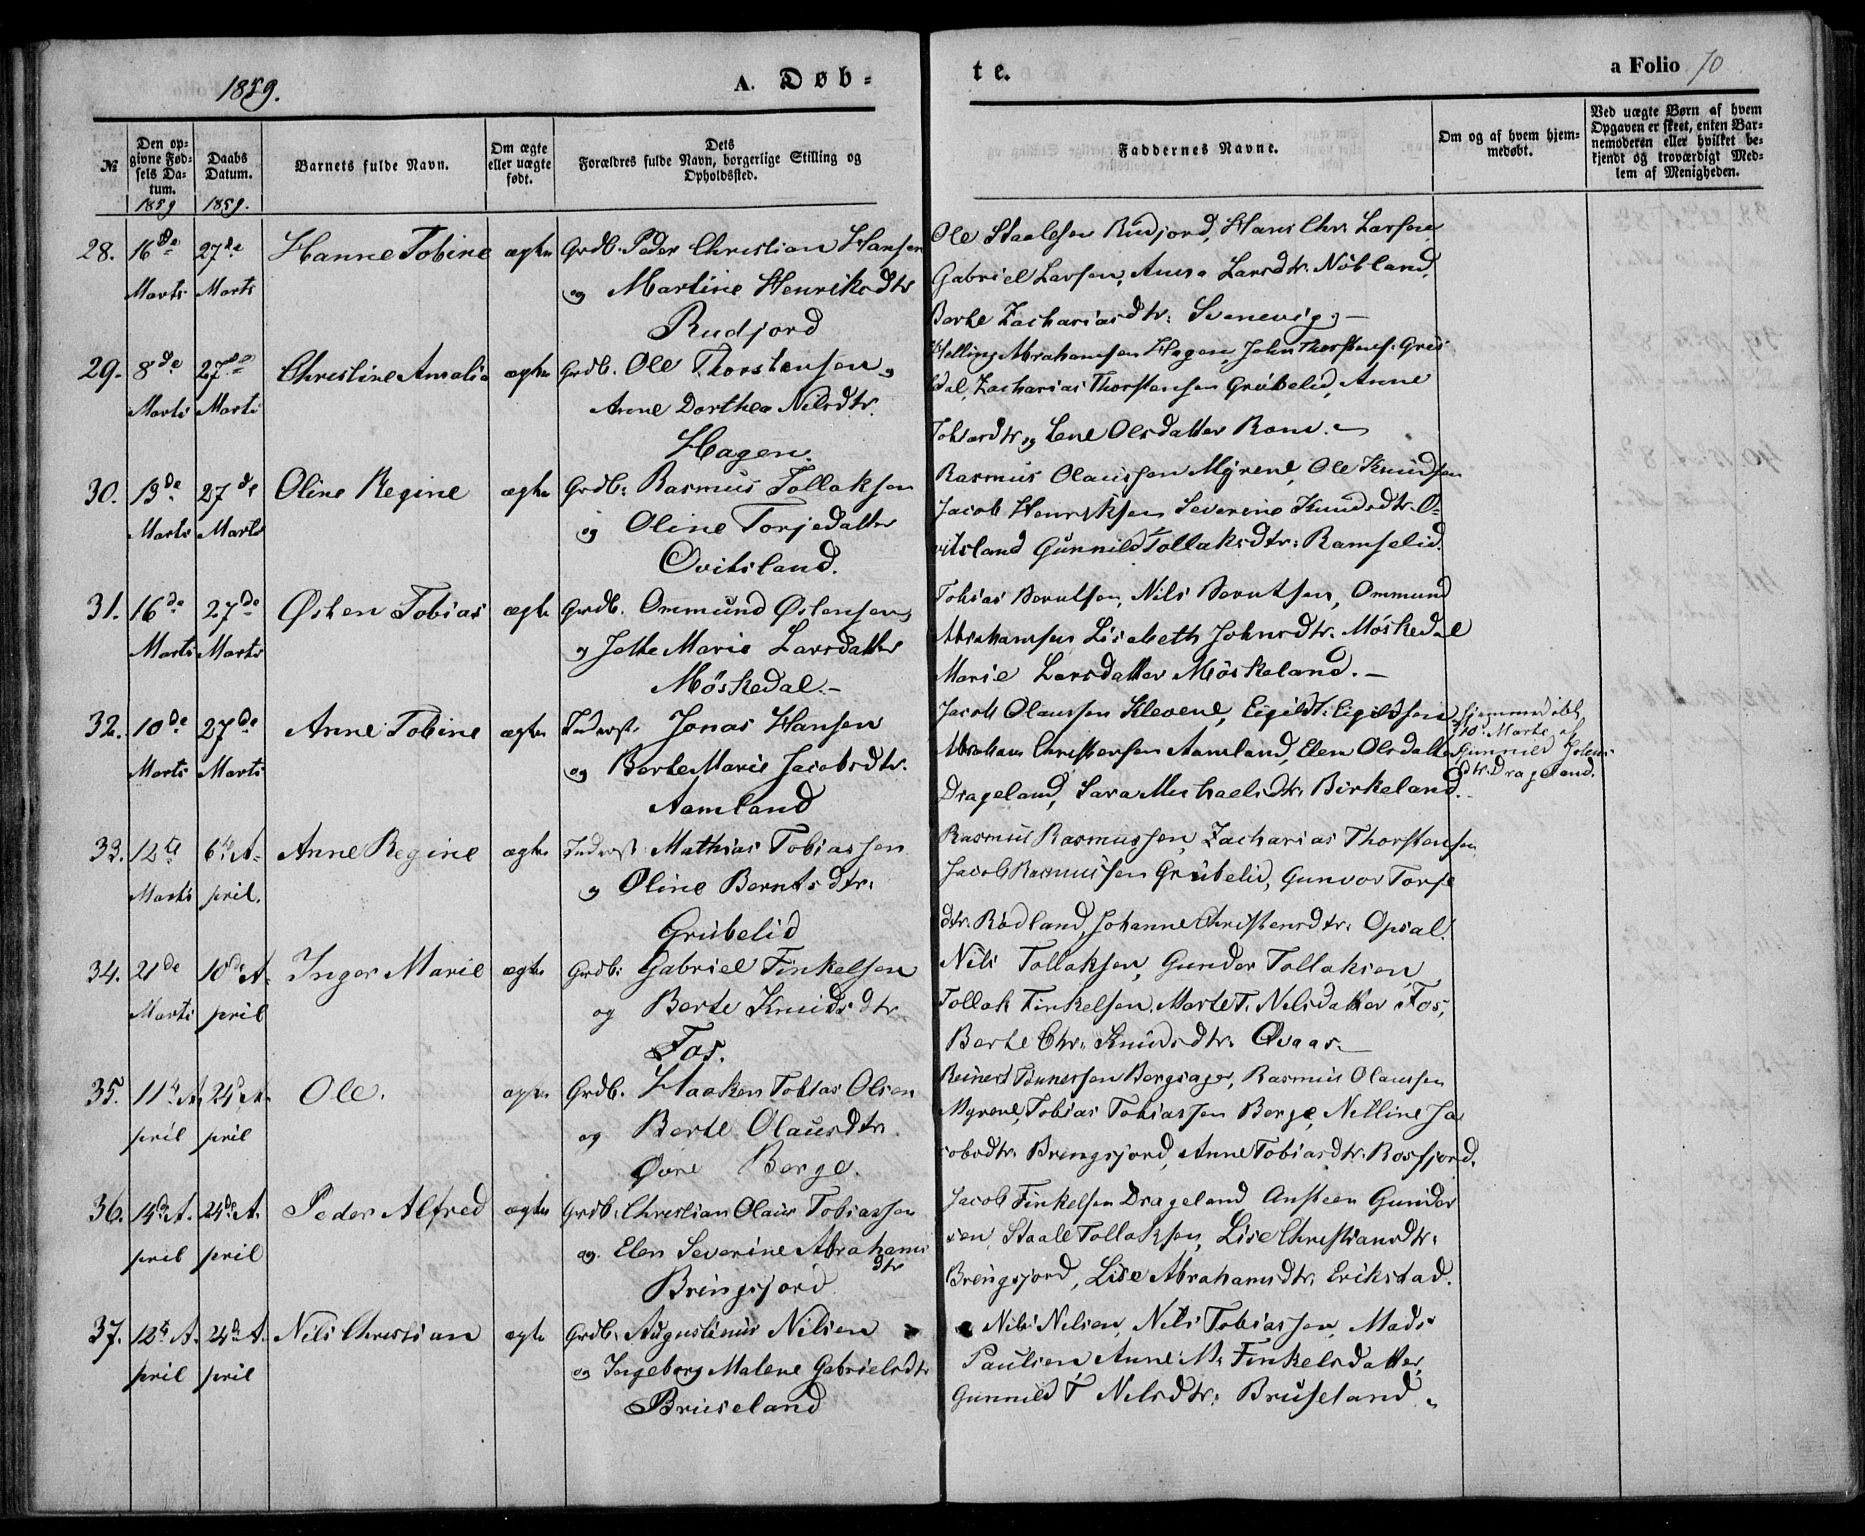 1859. A. Døb-
te. a Folio 70
№ Den opgivne Fødsels Datum. 1859 Daabs Datum. 1859. Barnets fulde Navn. Om ægte eller uægte født. Dets Forældres fulde Navn, borgerlige Stilling og Opholdssted.
Faddernes Navne. Om og af hvem hjemmedøbt. Ved uægte Børn af hvem Opgaven er skeet, enten Barnemoderen eller hvilket bekjendt og troværdigt Medlem af Menigheden.
28. 16de 27de Hanne Tobine ægte Grdb. Peder Christian Hansen
Marts Marts og Martine Henriksdtr
Rudjord
Ole Staalesen Rudjord, Hans Chr. Larsen,
Gabriel Larsen, Anna Larsdtr. Nöbland,
Berte Zachariasdtr: Svenevig. –
29. 8de 27de Christine Amalia ægte Grdb. Ole Thorstensen og
Marts Marts Anne Dorthea Nilsdtr.
Hagen.
Helling Abrahamsen Hagen, John Thorstens. Grei
dal, Zacharias Thorstensen Grübelid, Anne
Tobiasdtr og Lene Olsdatter Rom. –
30. 13de 27de Oline Regine ægte Grdb: Rasmus Tollaksen
Marts Marts og Oline Torjedatter
Qvitsland.
Rasmus Olaussen Myrene, Ole Knudsen
Jacob Henriksen Severine Knudsdtr. Q=
vitsland Gunnild Tollaksdtr: Ramselid.
31. 16de 27de Østen Tobias ægte Grdb. Ommund Østensen
Marts Marts og Jotte Marie Larsdatter
Møskedal. –
Tobias Berntsen, Nils Berntsen, Ommund
Abrahamsen Lisabeth Johnsdtr. Möskedal
Marie Larsdatter Möskeland. –
32. 10de 27de Anne Tobine ægte Inderst. Jonas Hansen
Marts Marts og Berte Marie Jacobsdtr.
Aamland
Jacob Olaussen Klevene, Eigild: Eigildsen
Abraham Christensen Aamland, Elen Olsdatter
Drageland, Sara Michaelsdtr: Birkeland. –
Hjemmedöbt
10 Marts af
Gunnild
dtr. Drageland.
33. 12te 6te A- Anne Regine ægte Inderst. Mathias Tobiassen
Marts pril. og Oline Berntsdtr.
Grübelid
Rasmus Rasmussen, Zacharias Thorstensen,
Jacob Rasmussen Grübelid, Gunvor Torje
dtr. Rödland, Johanne Christensdtr: Opsal.
34. 21de 10de A- Inger Marie ægte Grdb: Gabriel Finkelsen
Marts pril og Berte Knudsdtr
Fos.
Nils Tollaksen, Gunder Tollaksen,
Tollak Finkelsen, Marte T. Nilsdatter Fos,
Berte Chr. Knudsdtr. Qvaas –
35. 11te A 24de A Ole. ægte Grdb. Haaken Tobias Olsen
pril pril og Berte Olausdtr
Øvre Berge.
Reinert Tönnessen Bergsager, Rasmus Olaussen
Myrene, Tobias Tobiassen Berge, Nilline Ja
cobsdtr. Bringsjord, Anne Tobiasdtr. Rosfjord.
36. 14de A. 24de A. Peder Alfred ægte Grdb: Christian Olaus Tobiassen
pril pril og Elen Severine Abrahams
dtr
Bringsjord
Jacob Finkelsen Drageland Ansteen Gunder
sen, Staale Tollaksen, Lise Christiansdtr.
Bringsjord, Lise Abrahamsdtr. Erikstad.
37. 12te A. 24de A. Nils Christian ægte Grdb: Augustinus Nilsen
pril pril og Ingeborg Malene Gabrielsdtr
Bruseland
Nils Nilsen, Nils Tobiassen, Mads
Paulsen, Anne M. Finkelsdatter,
Gunnild T Nilsdtr: Bruseland.